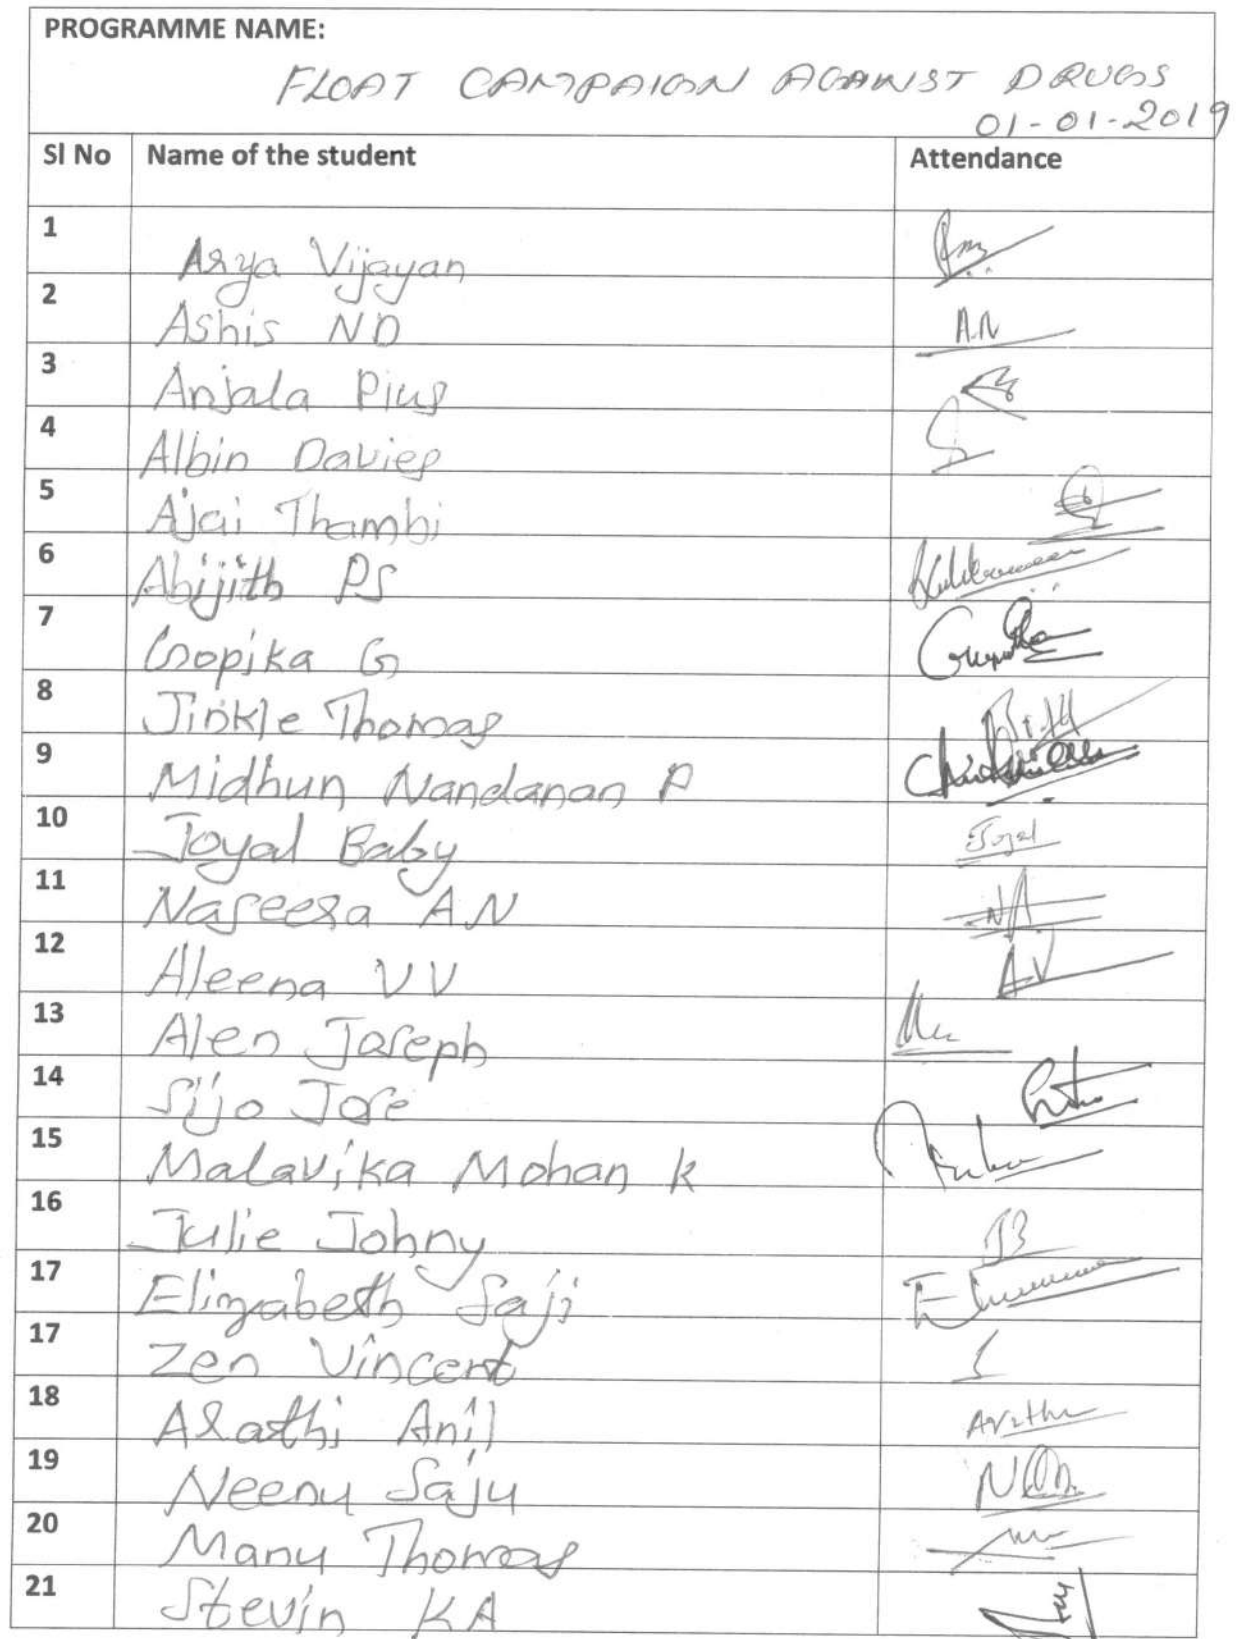 PROGRAMME NAME:
FLOAT CAMPAIGN AGAINST DRUGS
01-01-2019
Sl No Name of the student Attendance
1 Arya Vijayan
2 Ashis ND A.N
3 Anjala Pius
4 Albin Davies
5 Ajai Thambi
6 Abijith PS
7 Gopika G
8 Jinkle Thomas
9 Midhun Nandanan P
10 Joyal Baby Joyal
11 Naseera A.N NA
12 Aleena VV A.V
13 Alen Joseph
14 Sijo Jose
15 Malavika Mohan K
16 Julie Johny
17 Elizabeth Saji
17 Zen Vincent
18 Arathi Anil
19 Neenu Saju
20 Manu Thomas
21 Stevin KA